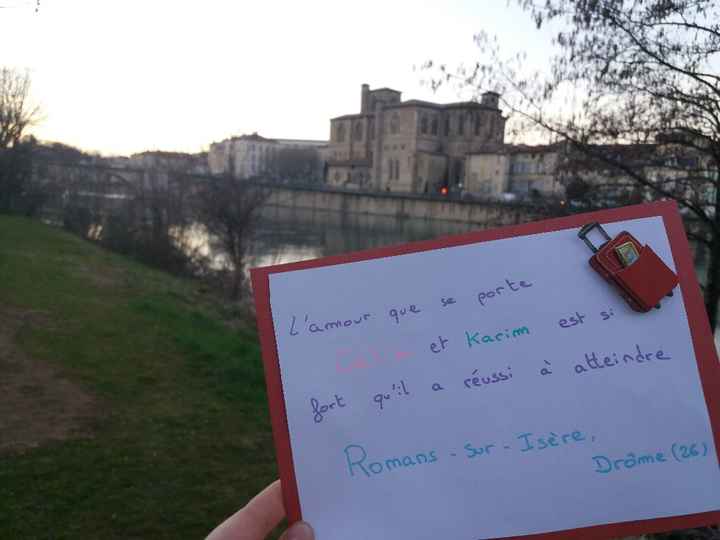 L'amour que se porte
et Karim est si
fort qu'il a réussi à atteindre
Romans-sur-Isère,
Drôme (26)